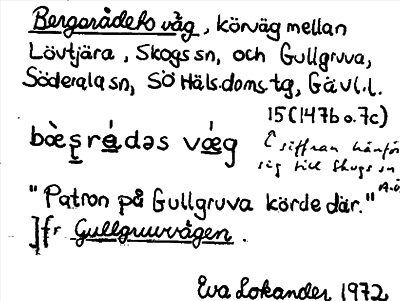 Bergsrådets väg, körväg mellan
Lövtjära, Skogs sn, och Gullgruva,
Söderala sn, SÖ Häls.doms.tg, Gävl.l.
15 (147b o. 7c)
bὼ̀e̜s̜rα̇́dəs vǿ̇g
siffran hänför
sig till Skogs sn
"Patron på Gullgruva körde där."
Jfr Gullgruvvägen.
Eva Lokander 1972